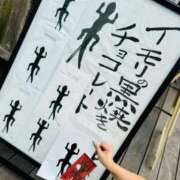 イモリの黒焼き
チョコレート